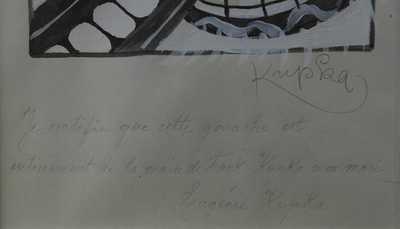 Kupka
Je certifie que cette gouache est
entièrement de la main de Frank Kupka mon mari
Eugénie Kupka